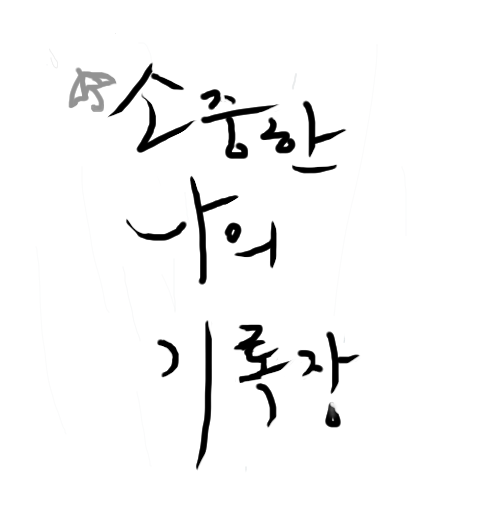 소중한
나의
기록장